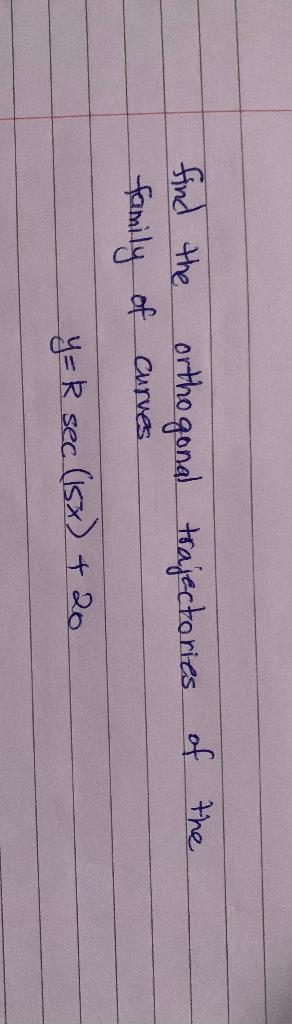 find the orthogonal trajectories of the
family of curves
y = k sec (15x) + 20